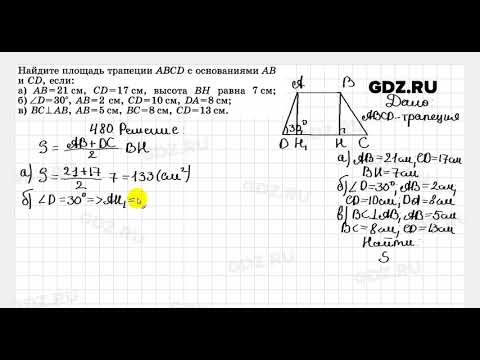 Найдите площадь трапеции ABCD с основаниями AB
и CD, если:
а) AB=21 см, CD=17 см, высота BH равна 7 см;
б) ∠D=30°, AB=2 см, CD=10 см, DA=8 см;
в) BC⊥AB, AB=5 см, BC=8 см, CD=13 см.
GDZ.RU
A B
30°
D H₁ H C
Дано
ABCD-трапеция
а) AB=21см, CD=17см
BH=7см
б) ∠D=30°, AB=2см,
CD=10см, DA=8см
в) BC⊥AB, AB=5см
BC=8см, CD=13см
Найти
S
480 Решение
S = AB+DC/2 BH
а) S = 21+17/2 7 = 133 (см²)
б) ∠D=30°=>AH₁=
GDZ.RU
GDZ.RU